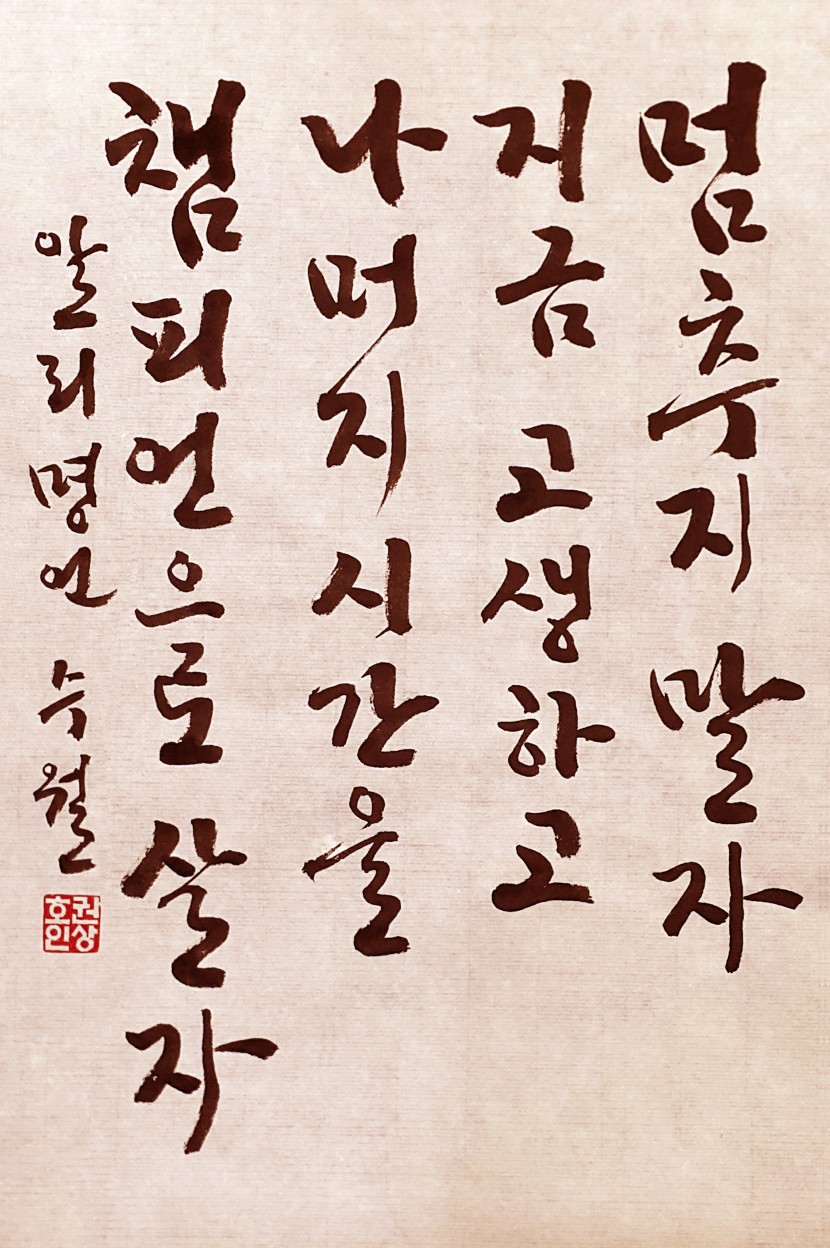 멈추지 말자
지금 고생하고
나머지 시간을
챔피언으로 살자
알리 명언 늑월
권상호인